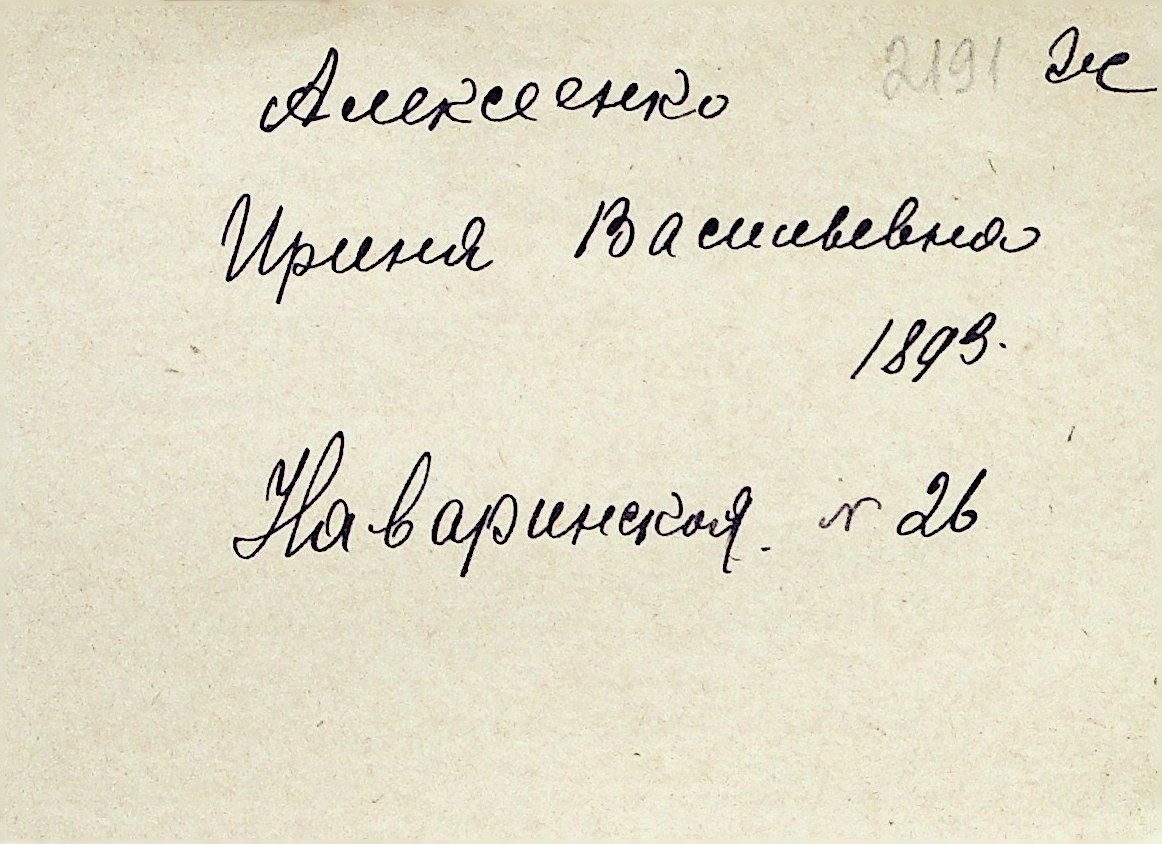 2191 Ж
Алексеенко
Ирина Васильевна
1893.
Наваринская. N 26